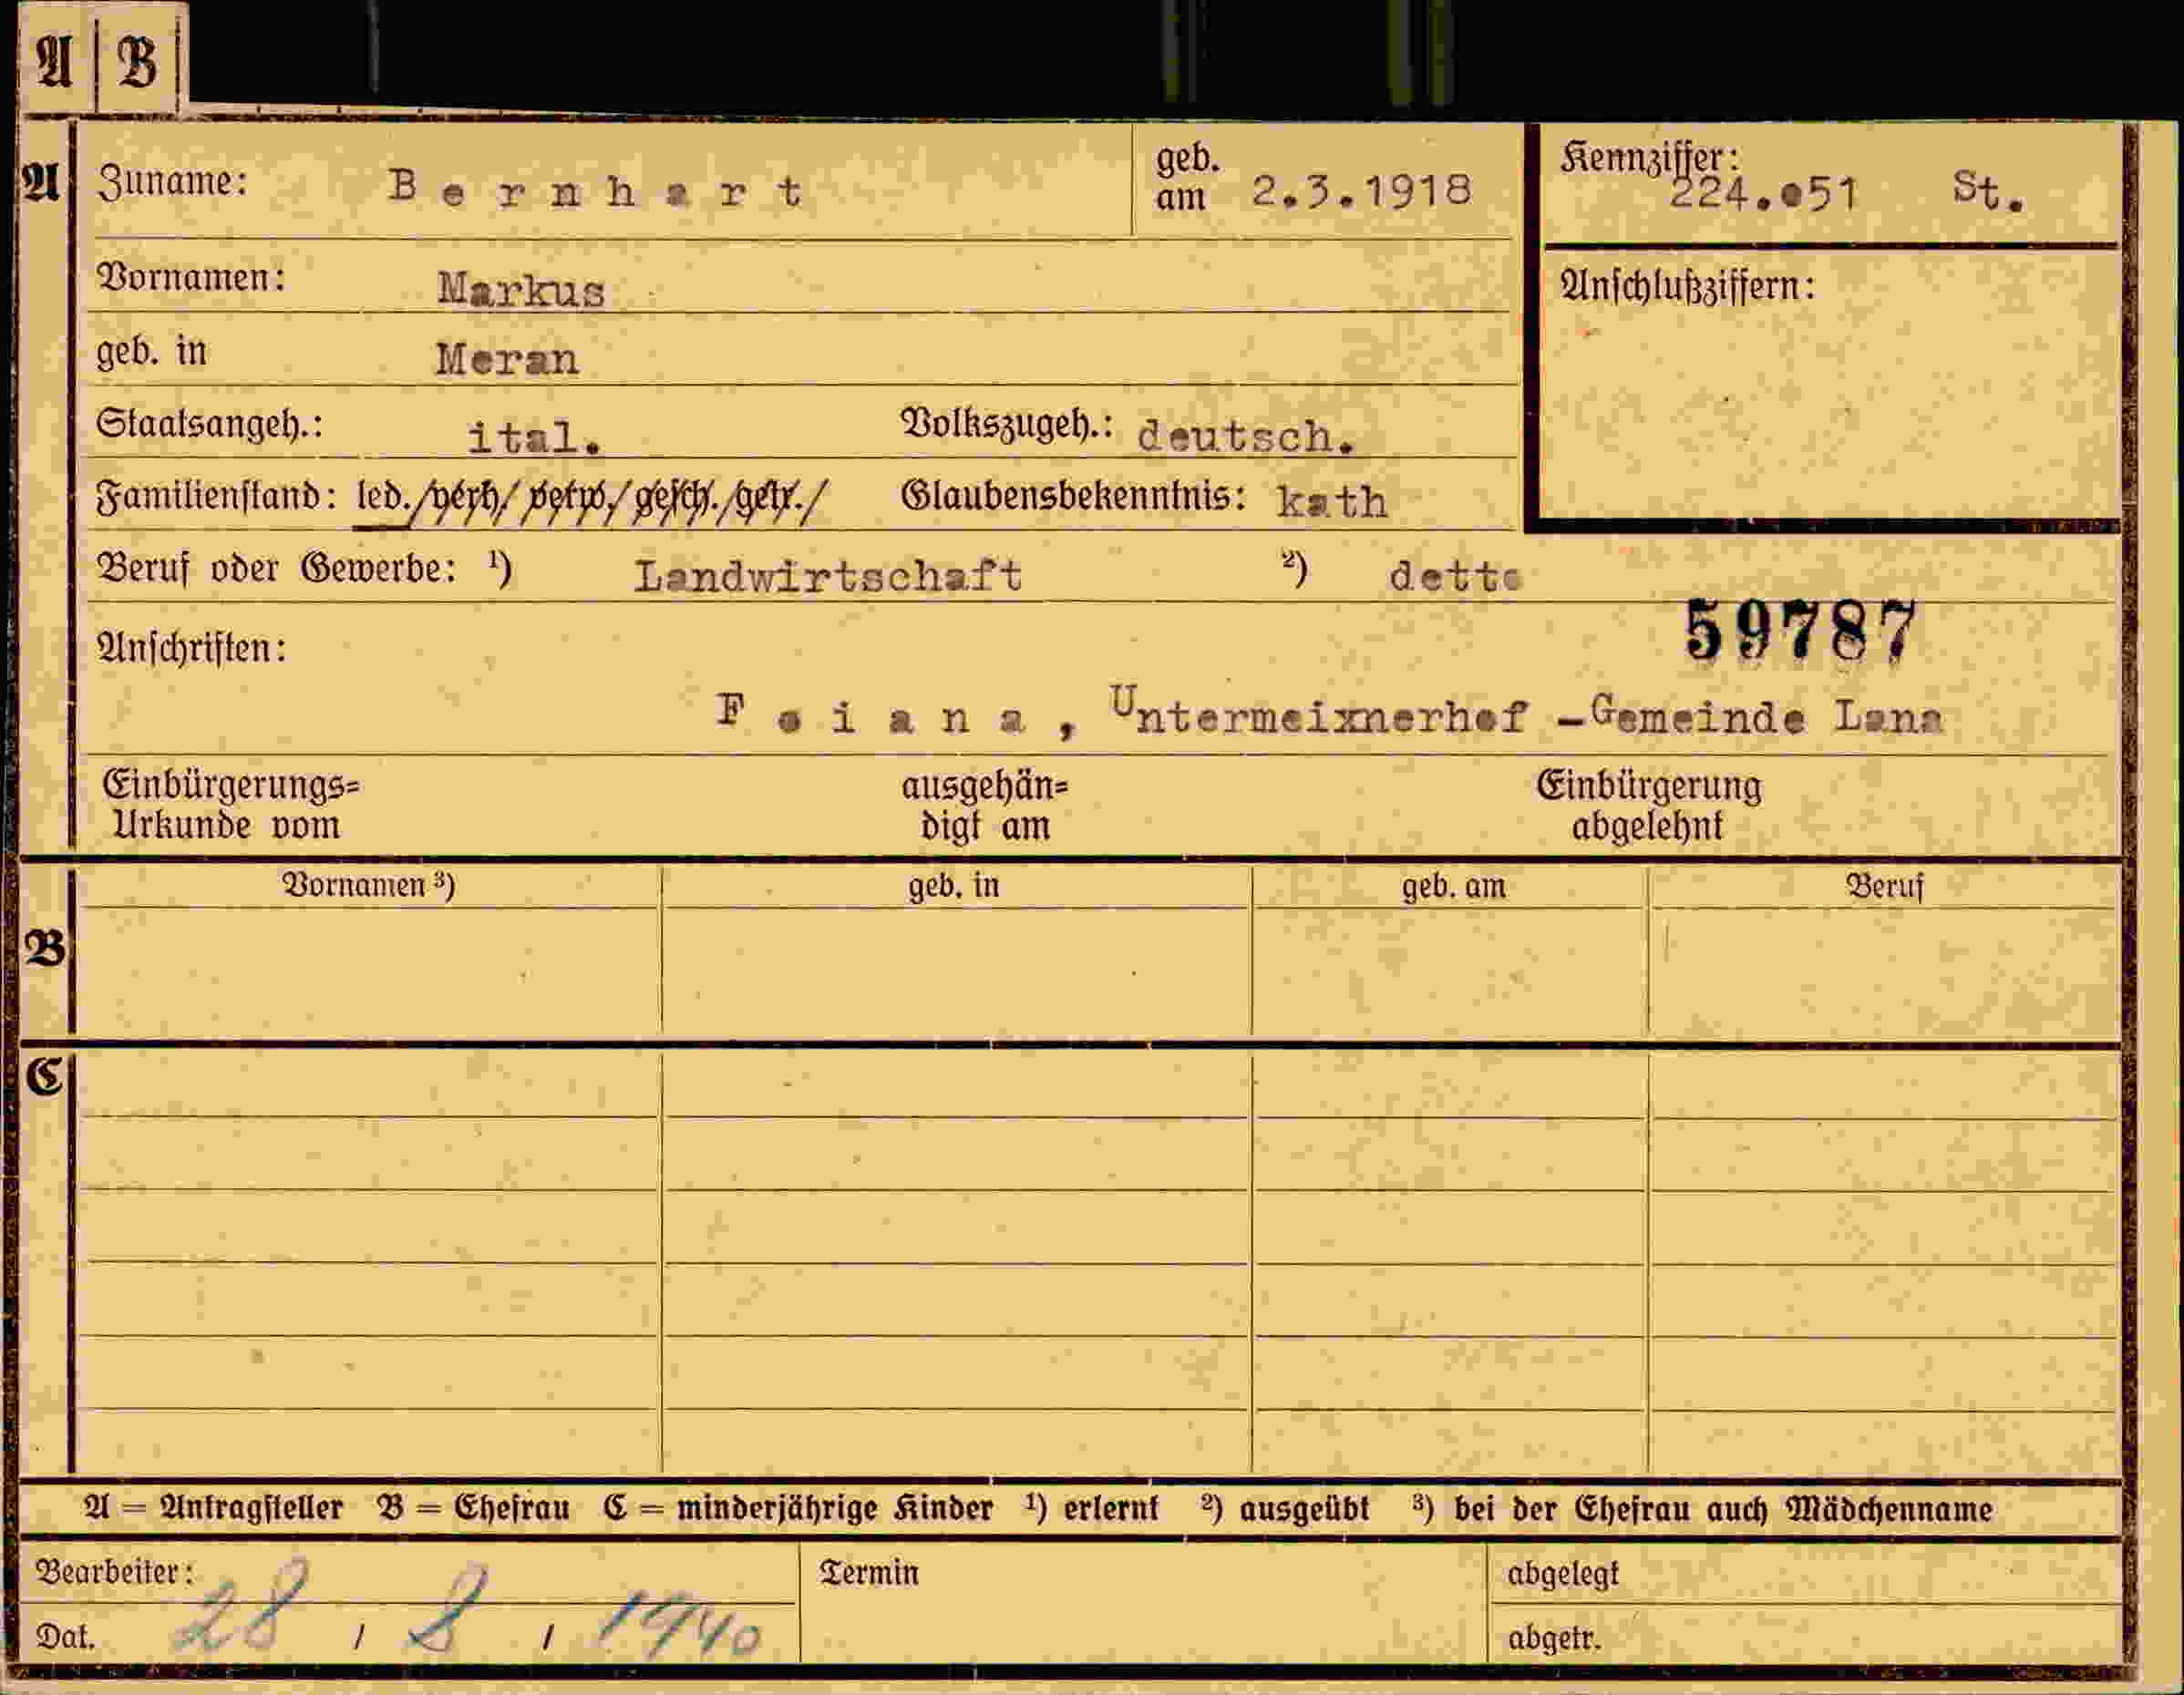 A B
A Zuname: Bernhart geb. am 2.3.1918 Kennziffer: 224.051 St.
Vornamen: Markus Anschlußziffern:
geb. in Meran
Staatsangeh.: ital. Volkszugeh.: deutsch.
Familienstand: led./verh./verw./gesch./getr./ Glaubensbekenntnis: kath
Beruf oder Gewerbe: ¹) Landwirtschaft ²) detto
59787
Anschriften:
Foiana, Untermeixnerhof -Gemeinde Lana
Einbürgerungs= ausgehän= Einbürgerung
Urkunde vom digt am abgelehnt
Vornamen ³) geb. in geb. am Beruf
B
C
A = Antragsteller B = Ehefrau C = minderjährige Kinder ¹) erlernt ²) ausgeübt ³) bei der Ehefrau auch Mädchenname
Bearbeiter: Termin abgelegt
Dat. 28 / 8 / 1940 abgetr.